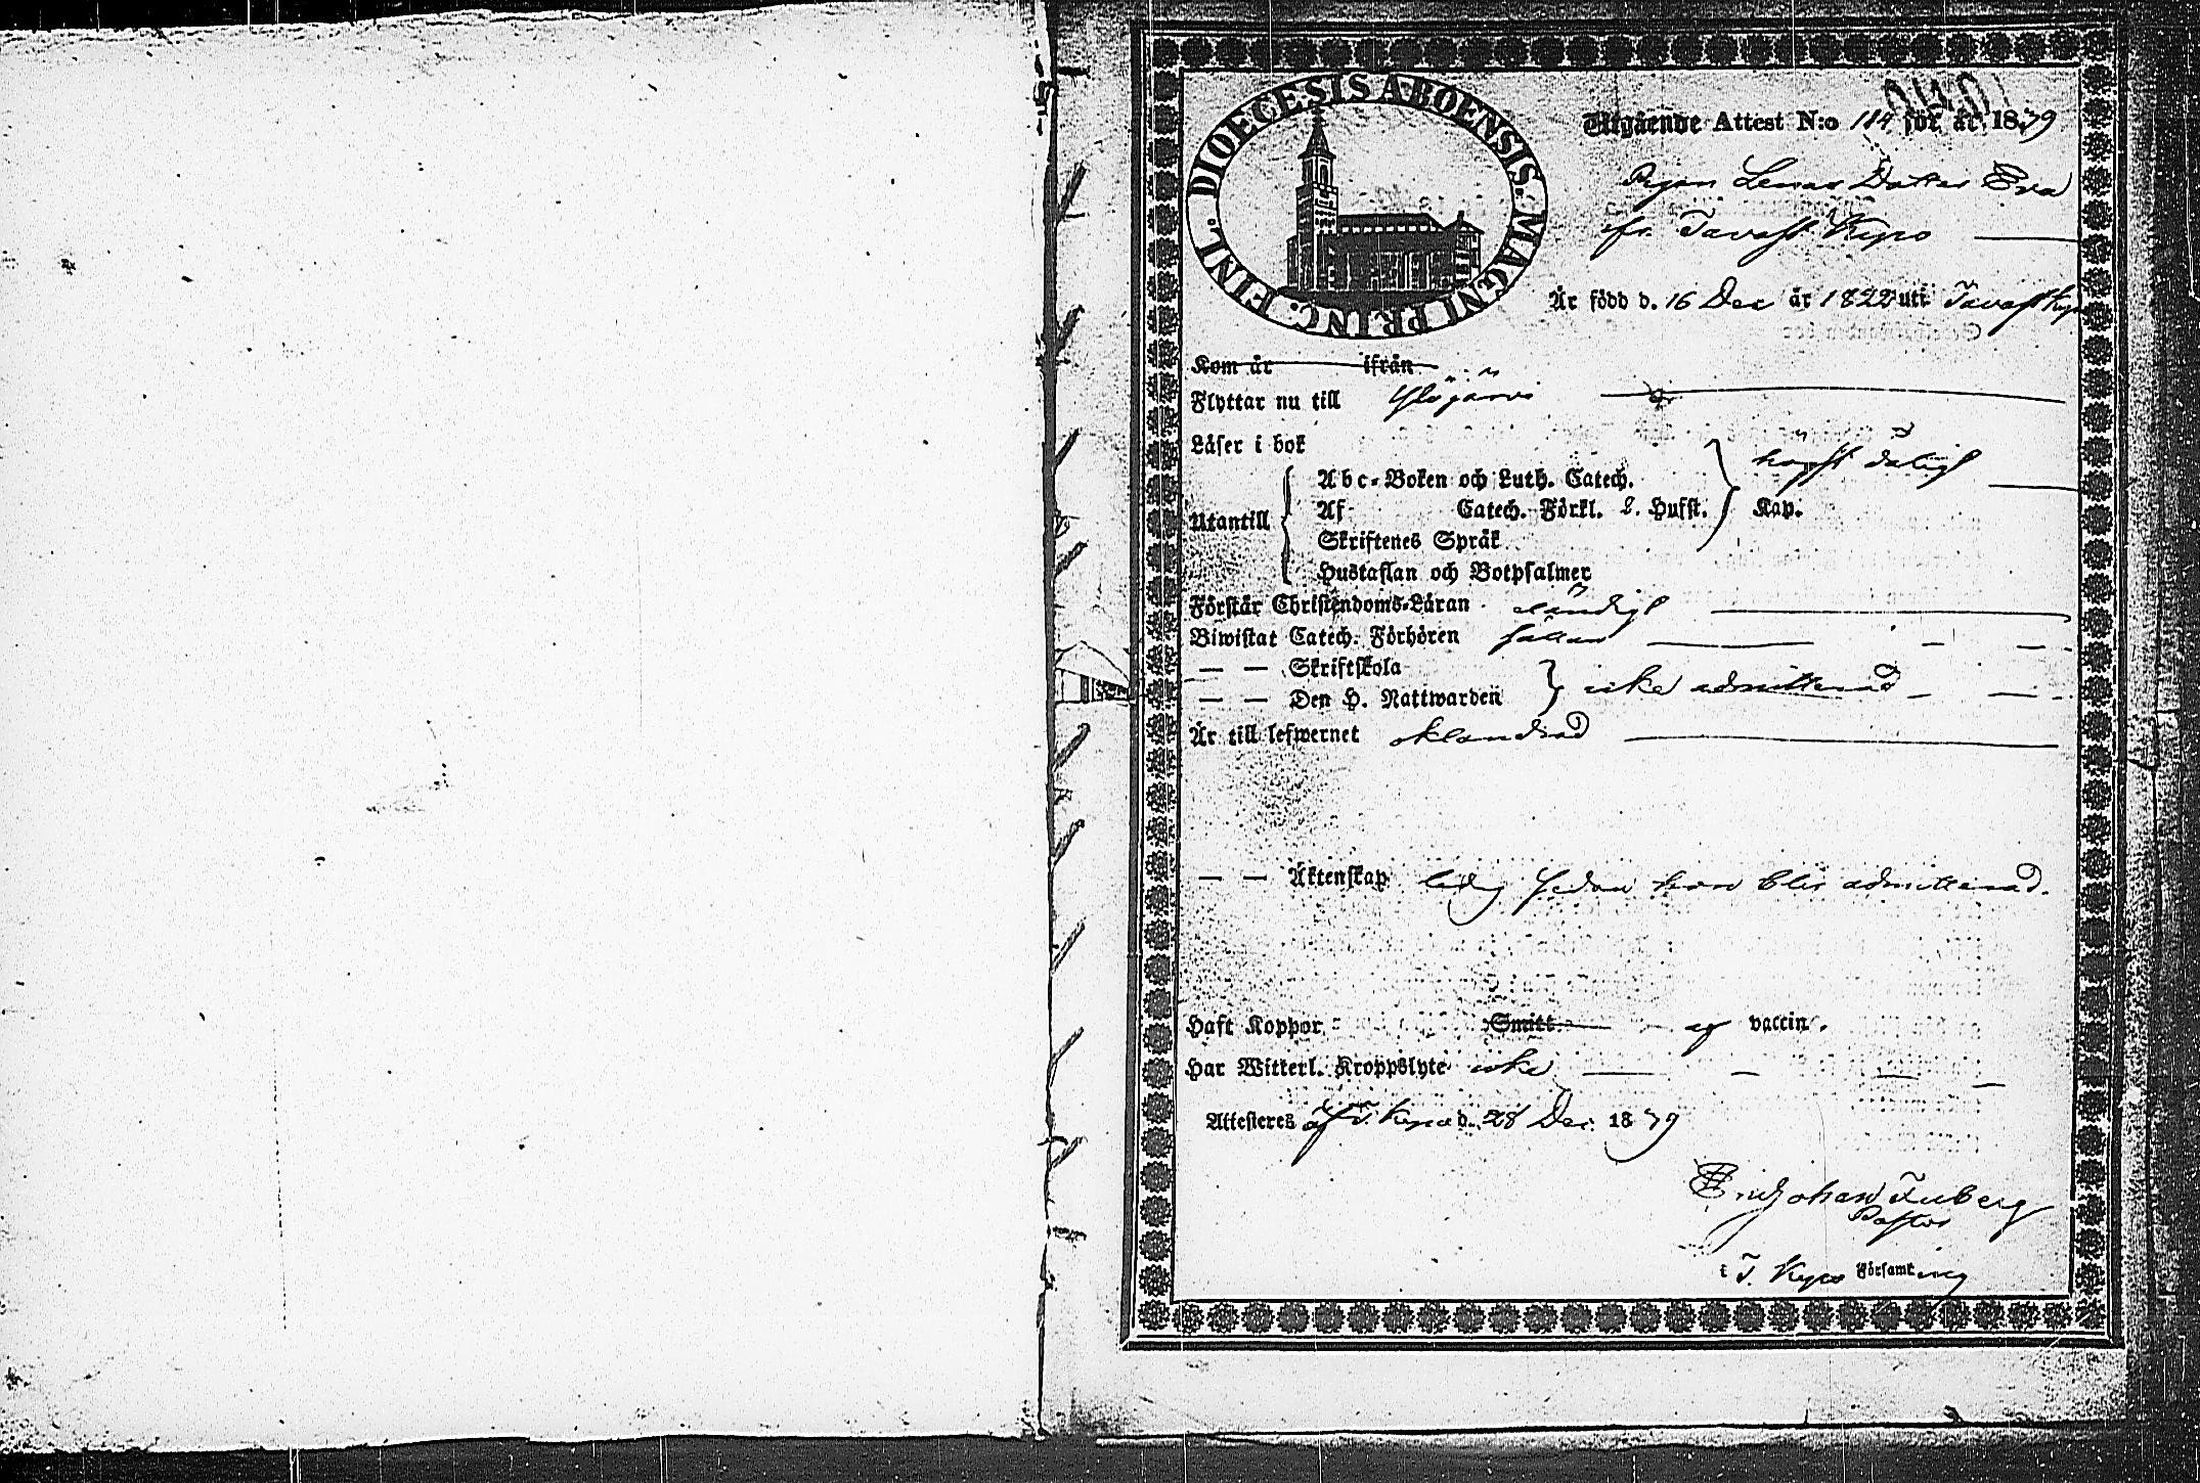 DIOECESIS ABOENSIS. MAGNI PRINC. FINL.
Utgående Attest N:o 114 för år 1839
Pigan Lenas Dotter Eva
fr. Tavast Kyro
Är född d. 16 Dec år 1822 uti Tavast Kyro
Kom år ifrån
Flyttar nu till Ylöjärvi
Läser i bok
högst dåligt
Utantill
Abc-Boken och Luth. Catech.
Af Catech. Förkl. 2. Hufst. Kap.
Skriftenes Språk
Hustaflan och Botpsalmer
Förstår Christendoms-Läran eländigt
Biwistat Catech. Förhören sällan
— — Skriftskola
— — Den H. Nattwarden icke admitterad
Är till lefwernet oklandrad
— — Äktenskap ledig sedan hon blir admitterad.
Haft Koppor Smitt af vaccin.
Har Witterl. Kroppslyte icke
Attesteres af T. Kyro d. 28 Dec. 1839
Johan
Pastor
i T. Kyro Församling